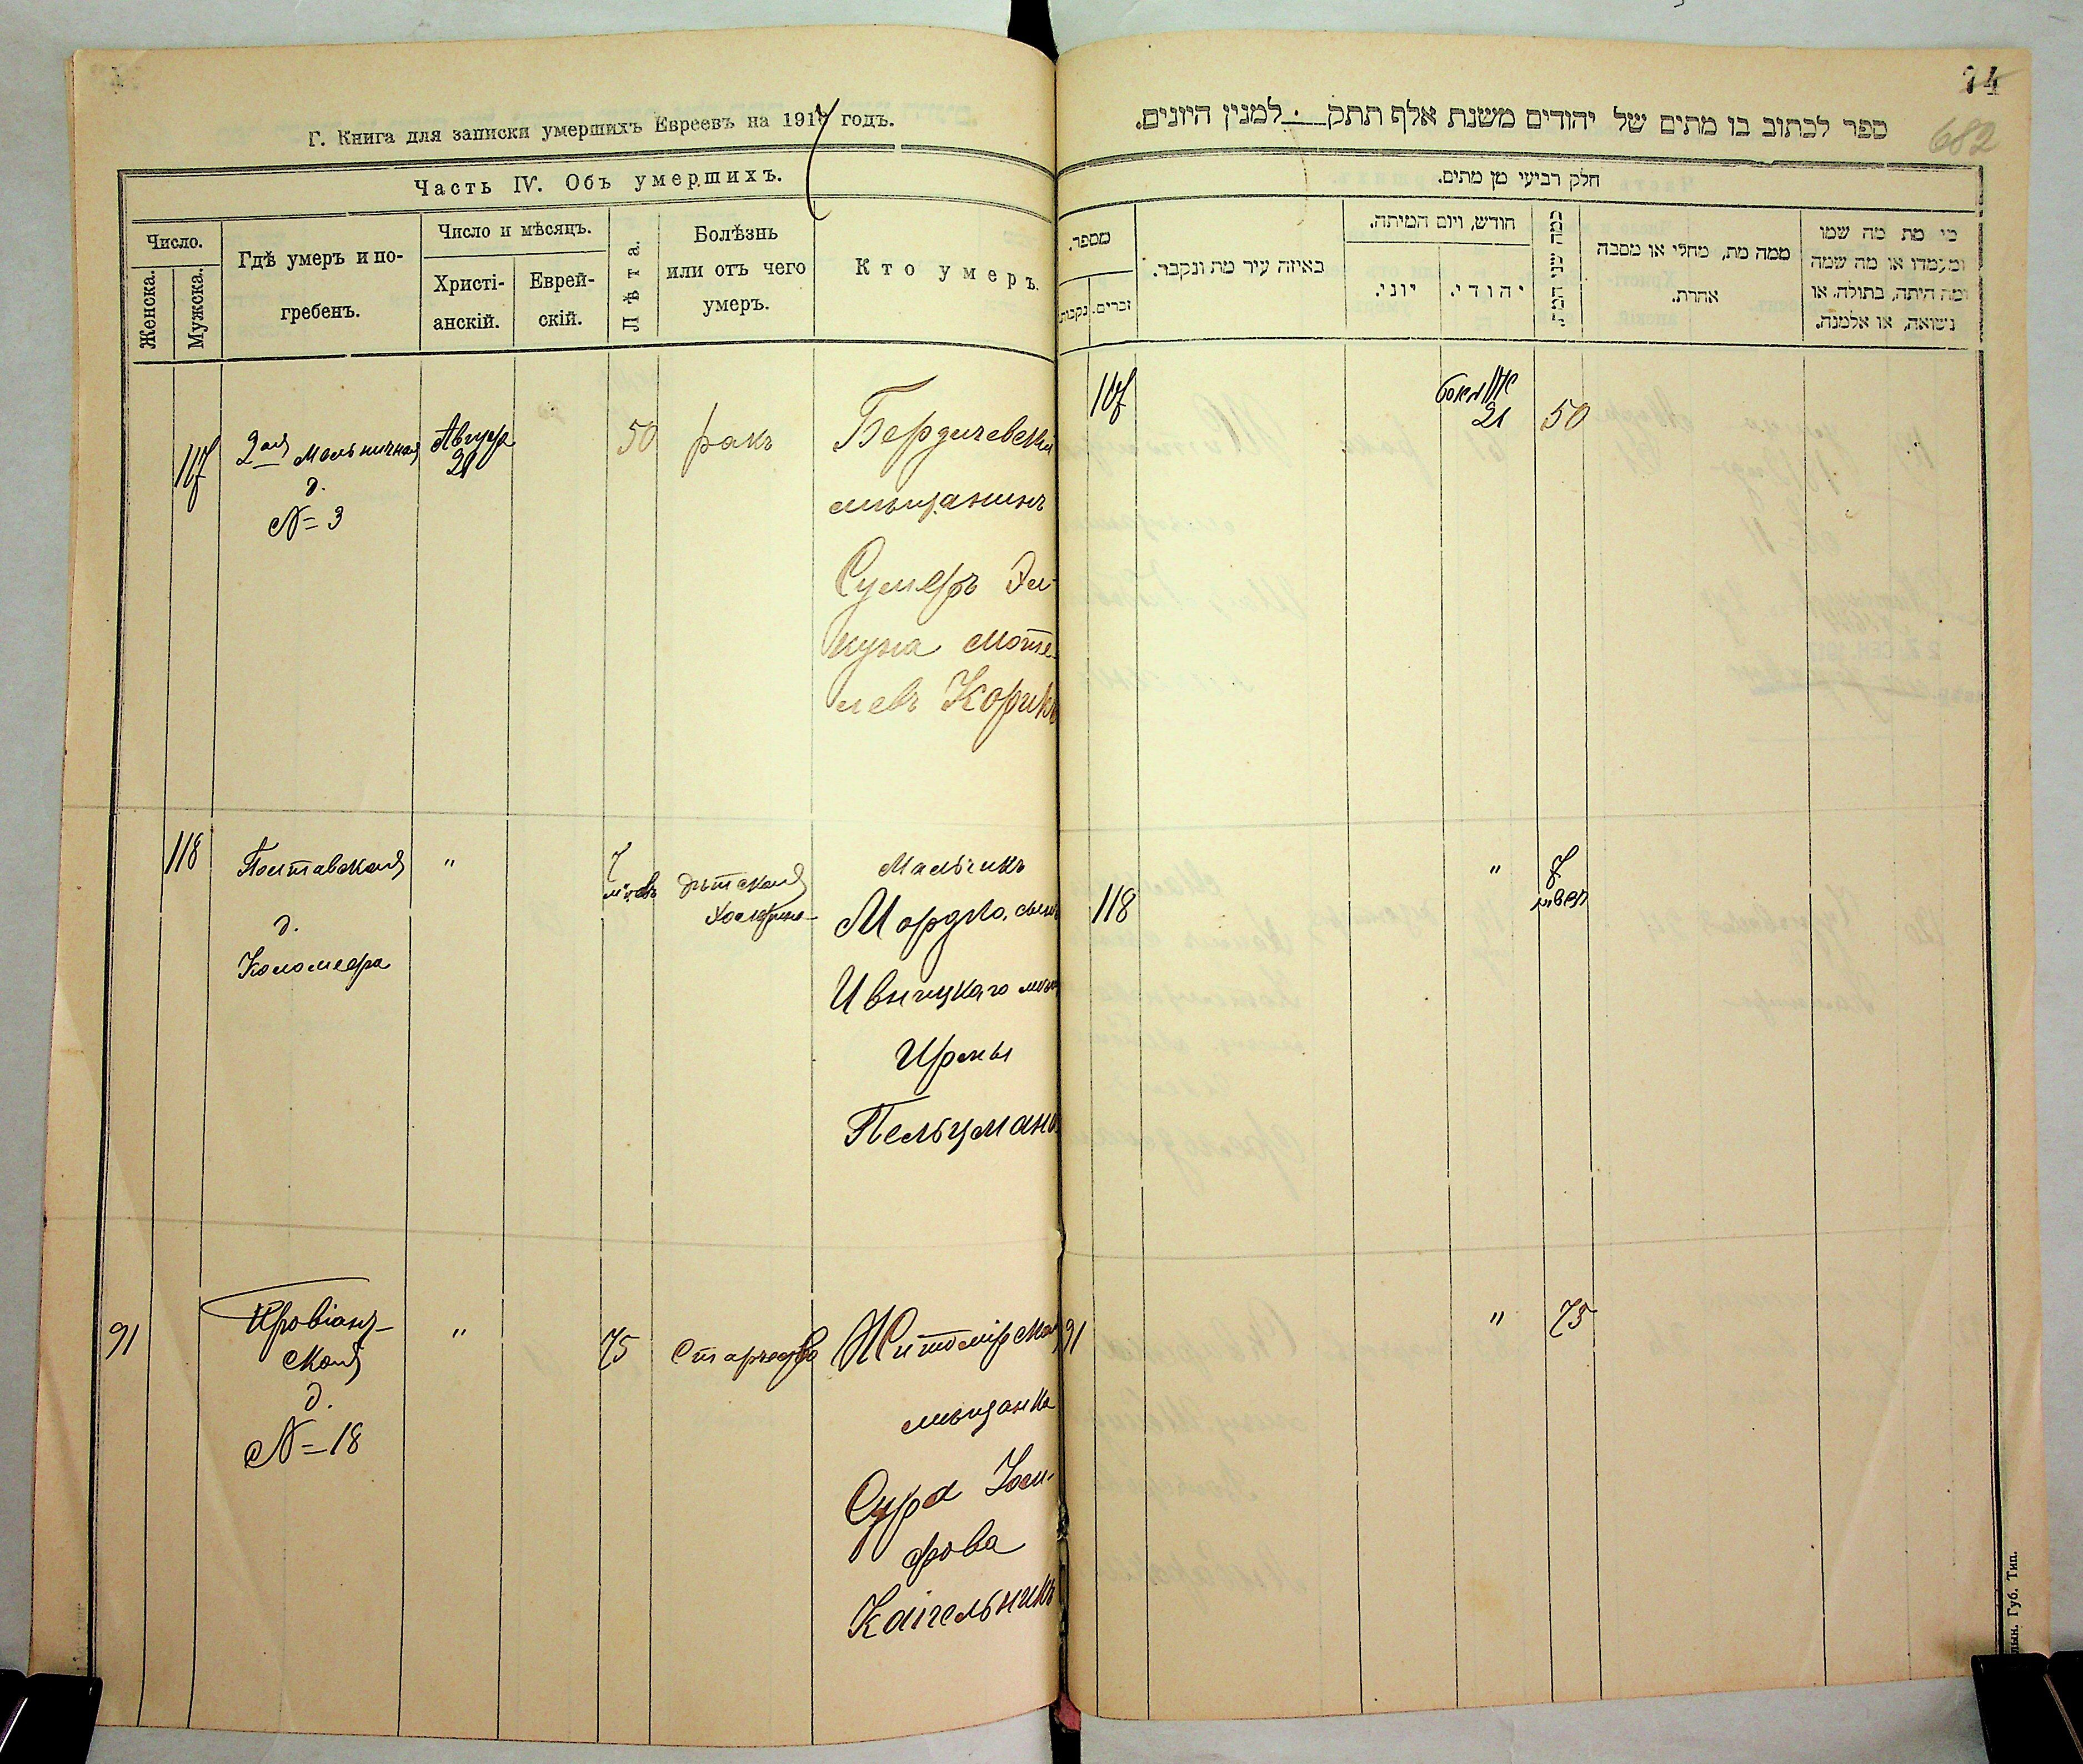 Г. Книга для записки умершихъ Евреевъ на 1917 годъ.
Часть IV. Объ умершихъ.
Число.
Женска.
Мужска.
Гдѣ умеръ и по-
гребенъ.
Число и мѣсяцъ.
Христі-
анскій.
Еврей-
скій.
Лѣта.
Болѣзнь
или отъ чего
умеръ.
Кто умеръ.
117
2ая Мельничная
д.
№ 3
Августа
21
50
ракъ
Бердичевскій
мѣщанинъ
Мотe-
левъ Корикъ
118
Полтавская
д.
Коломеера
"
7
мѣс.
дѣтская
Мальчикъ
Мордко, сынъ
мѣщ
Ирмы
Пельцмана
91
Провіант-
ская
д.
№ 18
"
75
Старчество
Житомірская
мѣщанка
Сура Іоси-
фова
Кайгельникъ
74
682
ספר לכתוב בו מתים של יהודים משנת אלף תתק למנין היונים.
חלק רביעי מן מתים.
מספר.
נקבות.
זכרים.
באיזה עיר מת ונקבר.
חודש, ויום המיתה.
יוני.
יהודי.
כמה שני חייו
ממה מת, מחלי או מסבה
אחרת.
מי מת מה שמו
ומעמדו או מה שמה
ומה היתה, בתולה, או
נשואה, או אלמנה.
117
21
50
118
"
7
91
"
75
Губ. Тип.